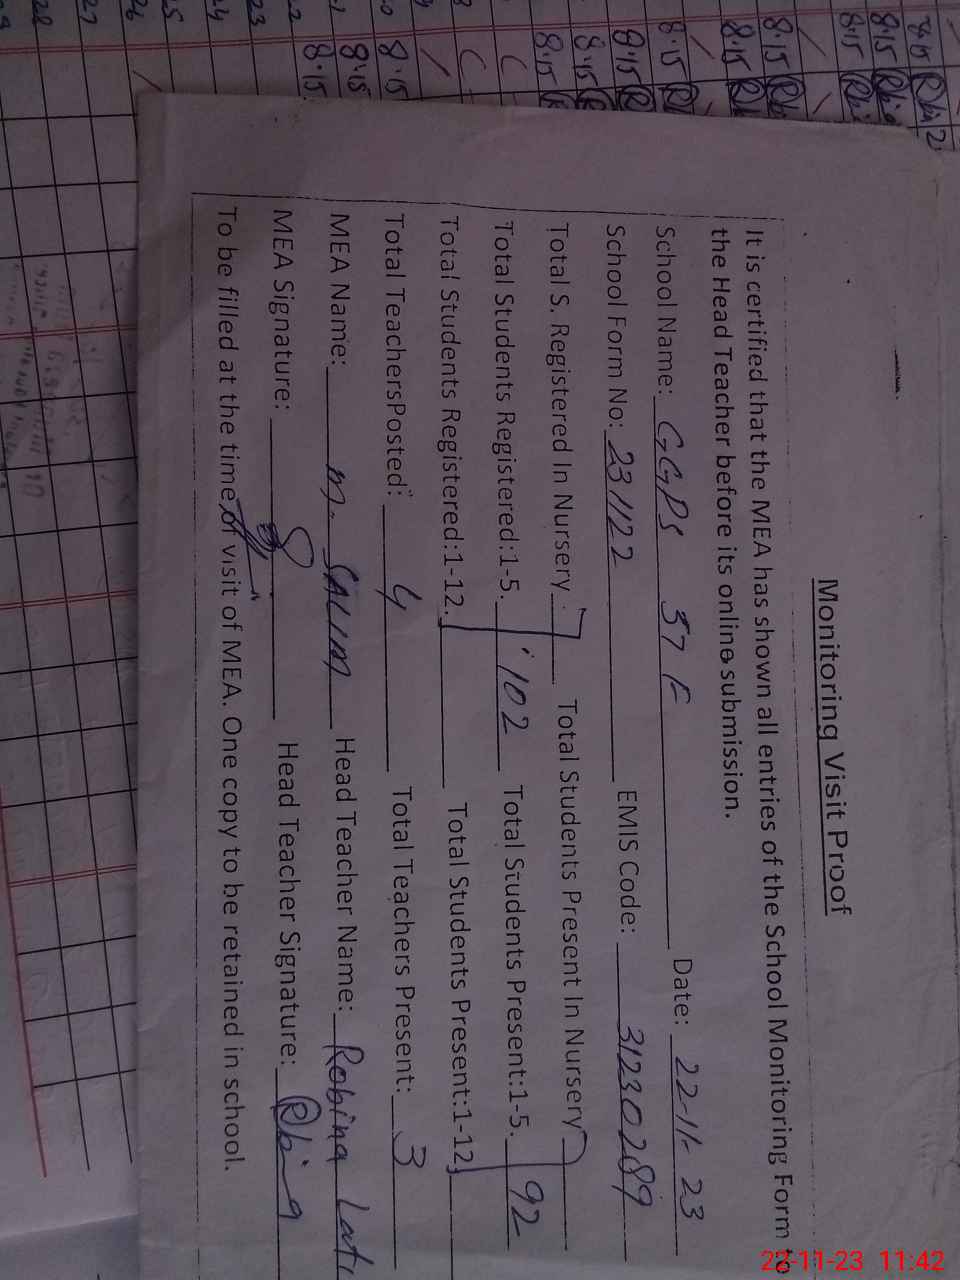 Monitoring Visit Proof
It is certified that the MEA has shown all entries of the School Monitoring Form to
the Head Teacher before its online submission.
School Name: GGPS 37 F Date: 22-11-23
School Form No: 231122 EMIS Code: 31230289
Total S. Registered In Nursery Total Students Present In Nursery
Total Students Registered:1-5. 102 Total Students Present:1-5. 92
Total Students Registered:1-12. Total Students Present:1-12
Total TeachersPosted: 4 Total Teachers Present: 3
MEA Name: M. SALIM Head Teacher Name: Robina
MEA Signature: Head Teacher Signature: Rbina
To be filled at the time of visit of MEA. One copy to be retained in school.
8.15
8.15
8.15
8.15
8.15
8.15
8.15
8.15
8.15
8.15
8.15
8.15
23
24
25
26
27
28
22-11-23 11:42